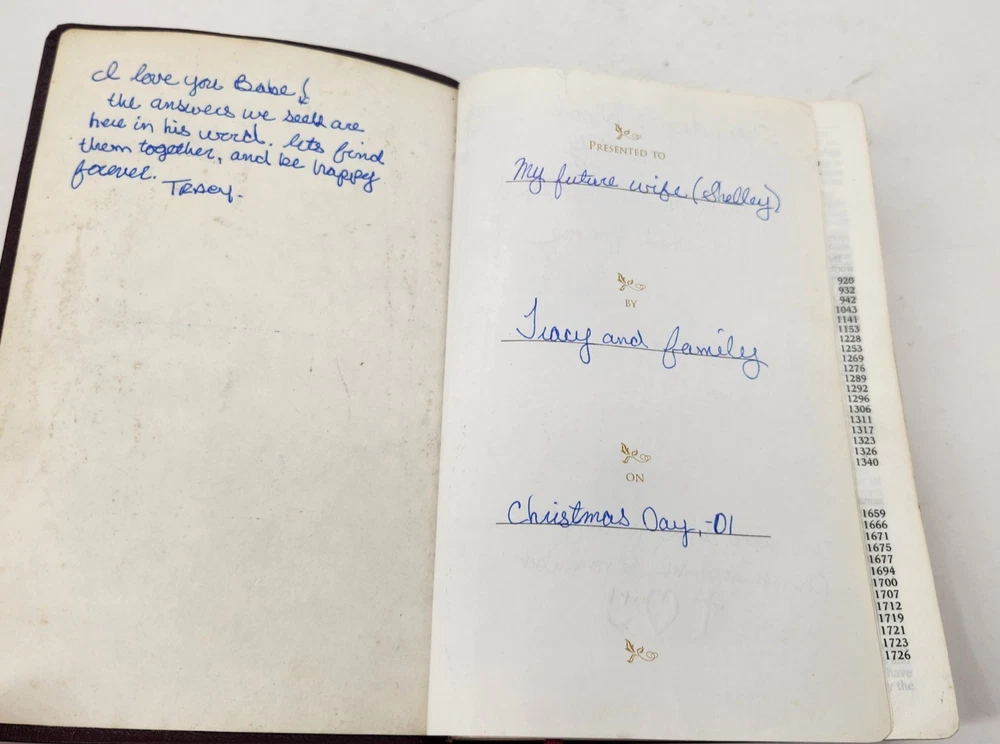 I love you Babe!
the answers we seek are
here in his word. lets find
them together, and be happy
forever.
TRACY.
PRESENTED TO
My future wife (Shelley)
BY
Tracy and family
ON
Christmas Day, -01
920
932
942
1043
1141
1153
1228
1253
1269
1276
1289
1292
1296
1306
1311
1317
1323
1326
1340
1659
1666
1671
1675
1677
1694
1700
1707
1712
1719
1721
1723
1726
have
the